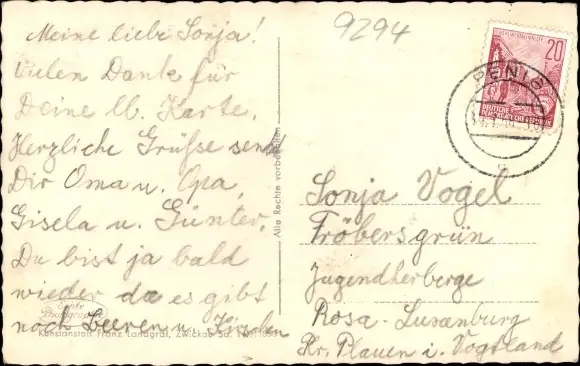 Meine liebe Sonja!
Vielen Dank für
Deine lb. Karte.
Herzliche Grüße send
Dir Oma u. Opa,
Gisela u. Günter.
Du bist ja bald
wieder da es gibt
noch Beeren u.
Echte Photographie
Kunstanstalt Franz Landgraf, Zwickau Sa.
Alle Rechte vorbehalten
9294
20
DEUTSCHE
DEMOKRATISCHE REPUBLIK
PENIG
Sonja Vogel
Fröbersgrün
Jugendherberge
Rosa-Luxenburg
Kr. Plauen i. Vogtland